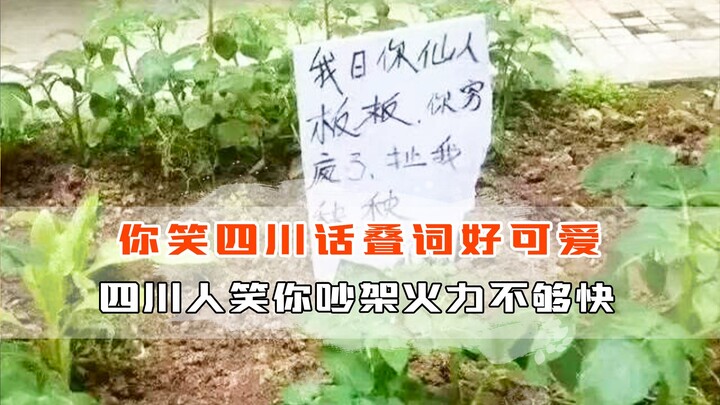 我日你仙人
板板，你穷
疯了，扯我
秧秧
你笑四川话叠词好可爱
四川人笑你吵架火力不够快